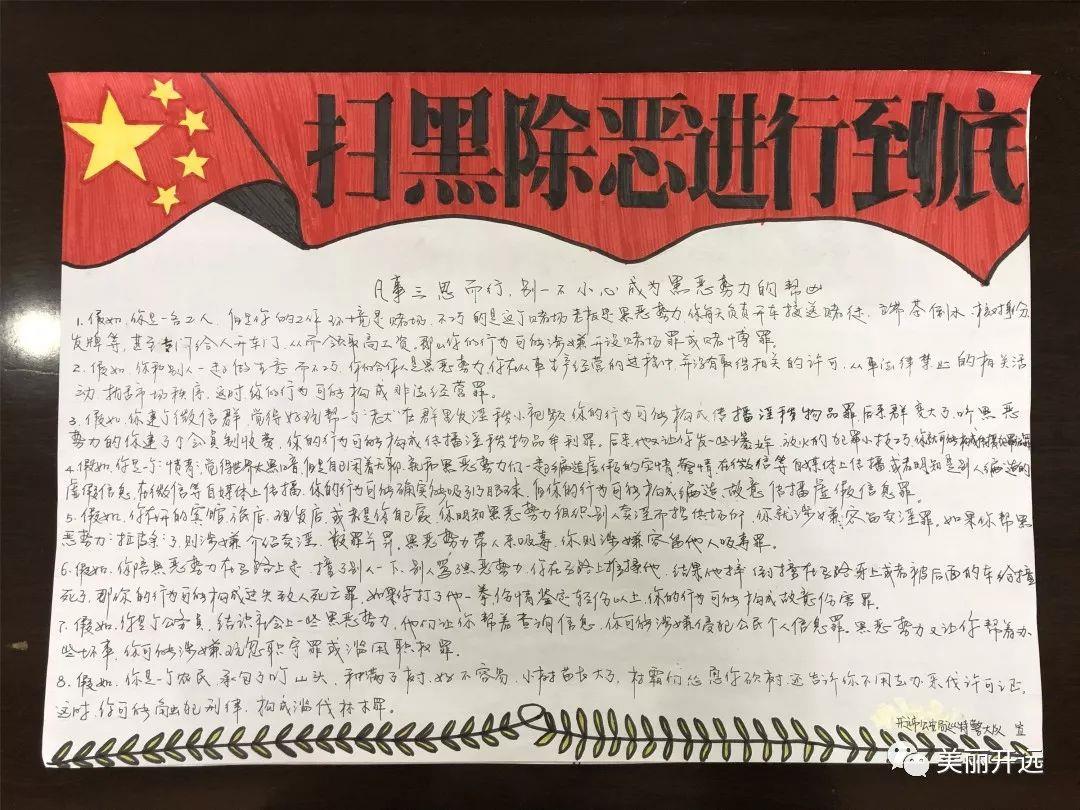 扫黑除恶进行到底
凡事三思而行,别一不小心成为黑恶势力的帮凶
1.假如,你是一名工人,但是你的工作环境是赌场,不巧的是这个赌场老板是黑恶势力,你每天负责开车接送赌徒、端茶倒水、核对身份
发牌等,甚至专门给人开车门,从而领取高工资。那么你的行为可能涉嫌开设赌场罪或赌博罪。
2.假如,你和别人一起做生意,而不巧,你的合伙人是黑恶势力,你在从事生产经营的过程中,并没有取得相关的许可,从事法律禁止的相关活
动,扰乱市场秩序,这时,你的行为可能构成非法经营罪。
3.假如,你建了微信群,觉得好玩帮一个"老大"在群里发淫秽小视频,你的行为可能构成传播淫秽物品罪,后来群变大了,听黑恶
势力的你建了个会员制收费,你的行为可能构成传播淫秽物品牟利罪。后来他又让你发一些爆炸、放火的犯罪小技巧,你就可能构成传授犯罪方法罪
4.假如,你是个"愤青",觉得世界太黑暗,但是自己闲着无聊,就和黑恶势力们一起编造虚假的灾情、警情在微信等自媒体上传播或者明知是别人编造的
虚假信息,在微信等自媒体上传播,你的行为可能确实能吸引了眼球,但你的行为可能构成编造、故意传播虚假信息罪。
5.假如,你在开的宾馆、饭店、理发店或者是你自家,你明知黑恶势力组织别人卖淫而提供场所,你就涉嫌容留卖淫罪,如果你帮黑
恶势力"拉皮条"了,则涉嫌介绍卖淫,数罪并罚。黑恶势力带人来吸毒,你则涉嫌容留他人吸毒罪。
6.假如,你陪黑恶势力在马路上走,撞了别人一下,别人骂了黑恶势力,你在马路上推搡他,结果他摔倒撞在马路牙上或者被后面的车给撞
死了,那你的行为可能构成过失致人死亡罪,如果你打了他一拳,伤情鉴定轻伤以上,你的行为可能构成故意伤害罪。
7.假如,你是个公务员,结识社会上一些黑恶势力,他们让你帮着查询信息,你可能涉嫌侵犯公民个人信息罪。黑恶势力又让你帮着办
些坏事,你可能涉嫌玩忽职守罪或滥用职权罪。
8.假如,你是一个农民,承包了个山头,种满了树,好不容易,小树苗长大了,村霸们怂恿你砍树,还告诉你不用去办采伐许可证,
这时,你可能触犯刑律,构成滥伐林木罪。
开远市公安局巡特警大队 宣
美丽开远